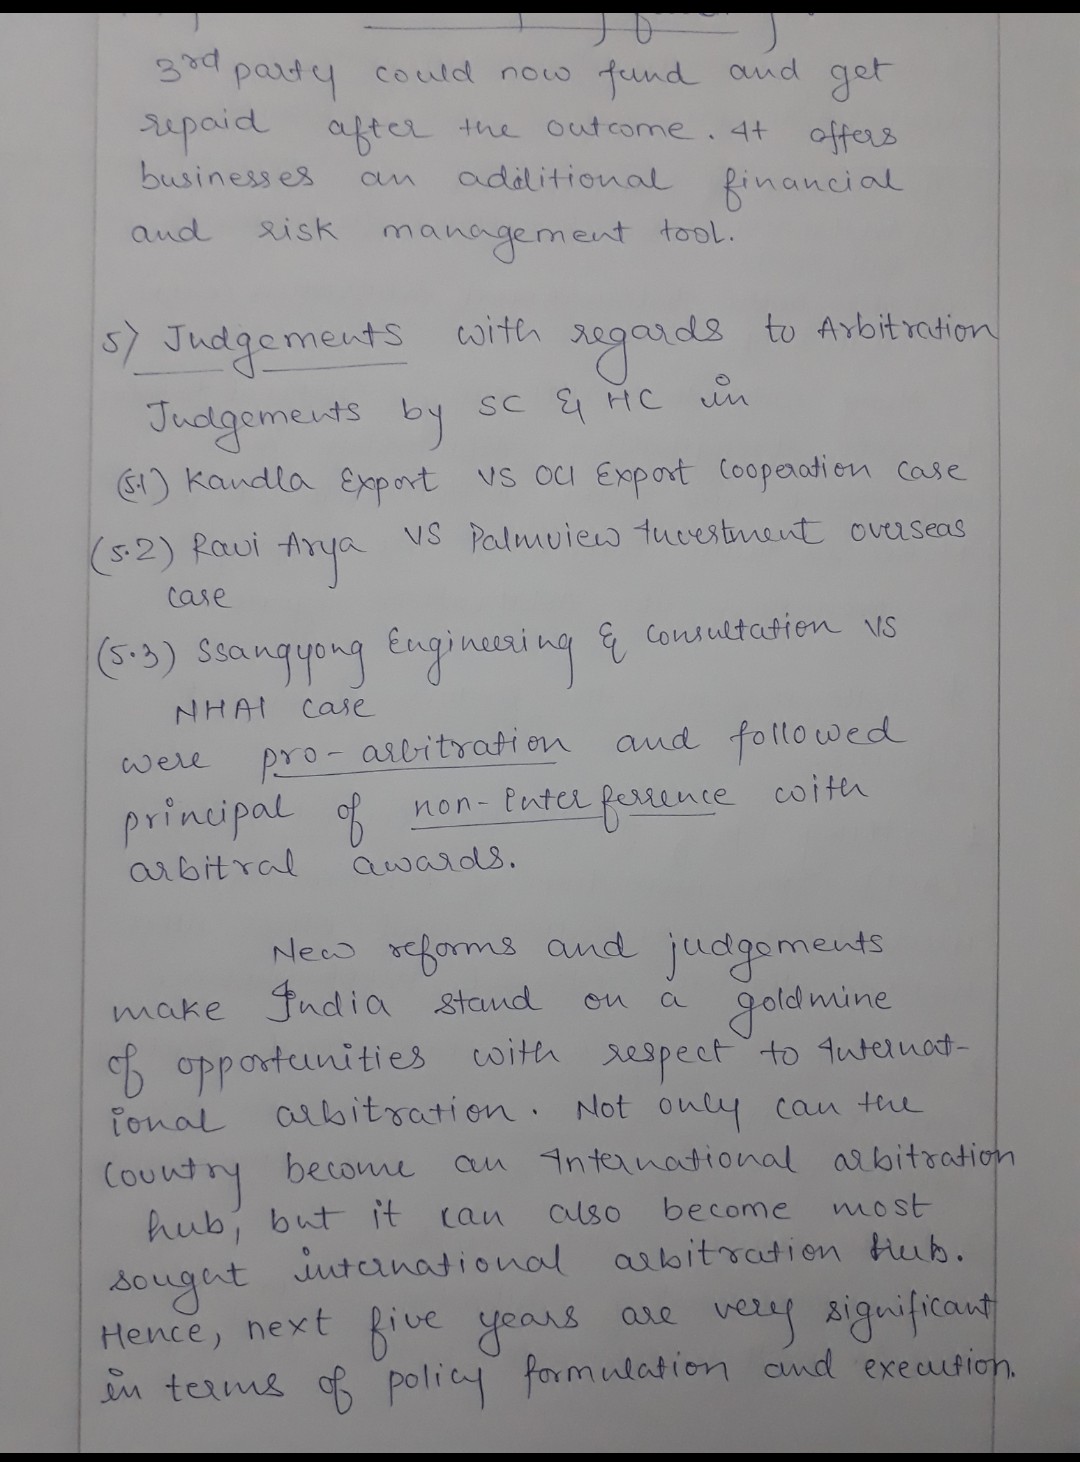 3rd party could now fund and get
repaid after the outcome. It offers
businesses an additional financial
and risk management tool.
5) Judgements with regards to Arbitration
Judgements by SC & HC in
(5.1) Kandla Export VS OCI Export Cooperation case
(5.2) Ravi Arya VS Palmview Investment overseas
case
(5.3) Ssangyong Engineering & Consultation VS
NHAI case
were pro-arbitration and followed
principal of non-Interferrence with
arbitral awards.
New reforms and judgements
make India stand on a goldmine
of opportunities with respect to Internat-
ional arbitration. Not only can the
Country become an International arbitration
hub, but it can also become most
sought international arbitration Hub.
Hence, next five years are very significant
in terms of policy formulation and execution.